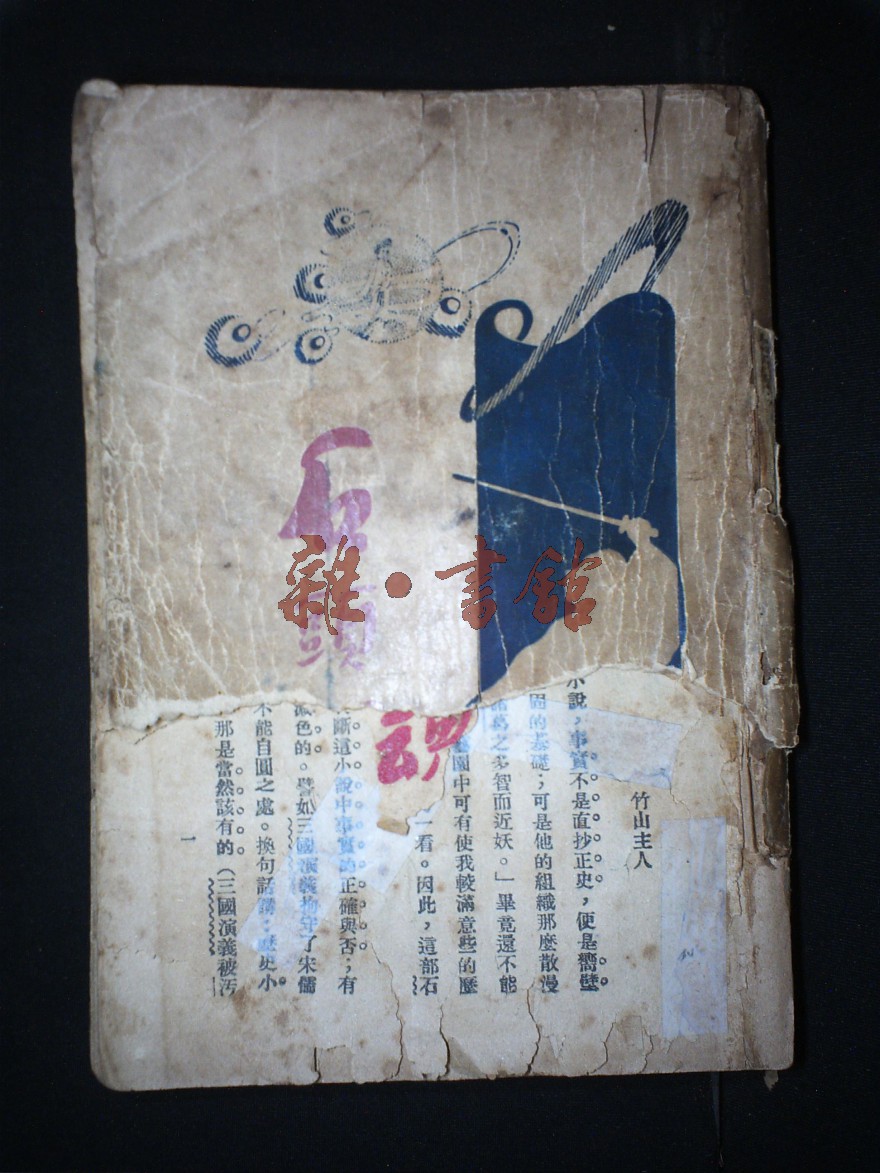 石頭
魂
雜·書館
竹山主人
小說，事實不是直抄正史，便是嚮壁
固的基礎；可是他的組織那麼散漫
諸葛之多智而近妖。」畢竟還不能
園中可有使我較滿意些的歷
一看。因此，這部石
斷這小說中事實的正確與否；有
色的。譬如三國演義拘守了宋儒
不能自圓之處。換句話講；歷史小
那是當然該有的（三國演義被汚
一